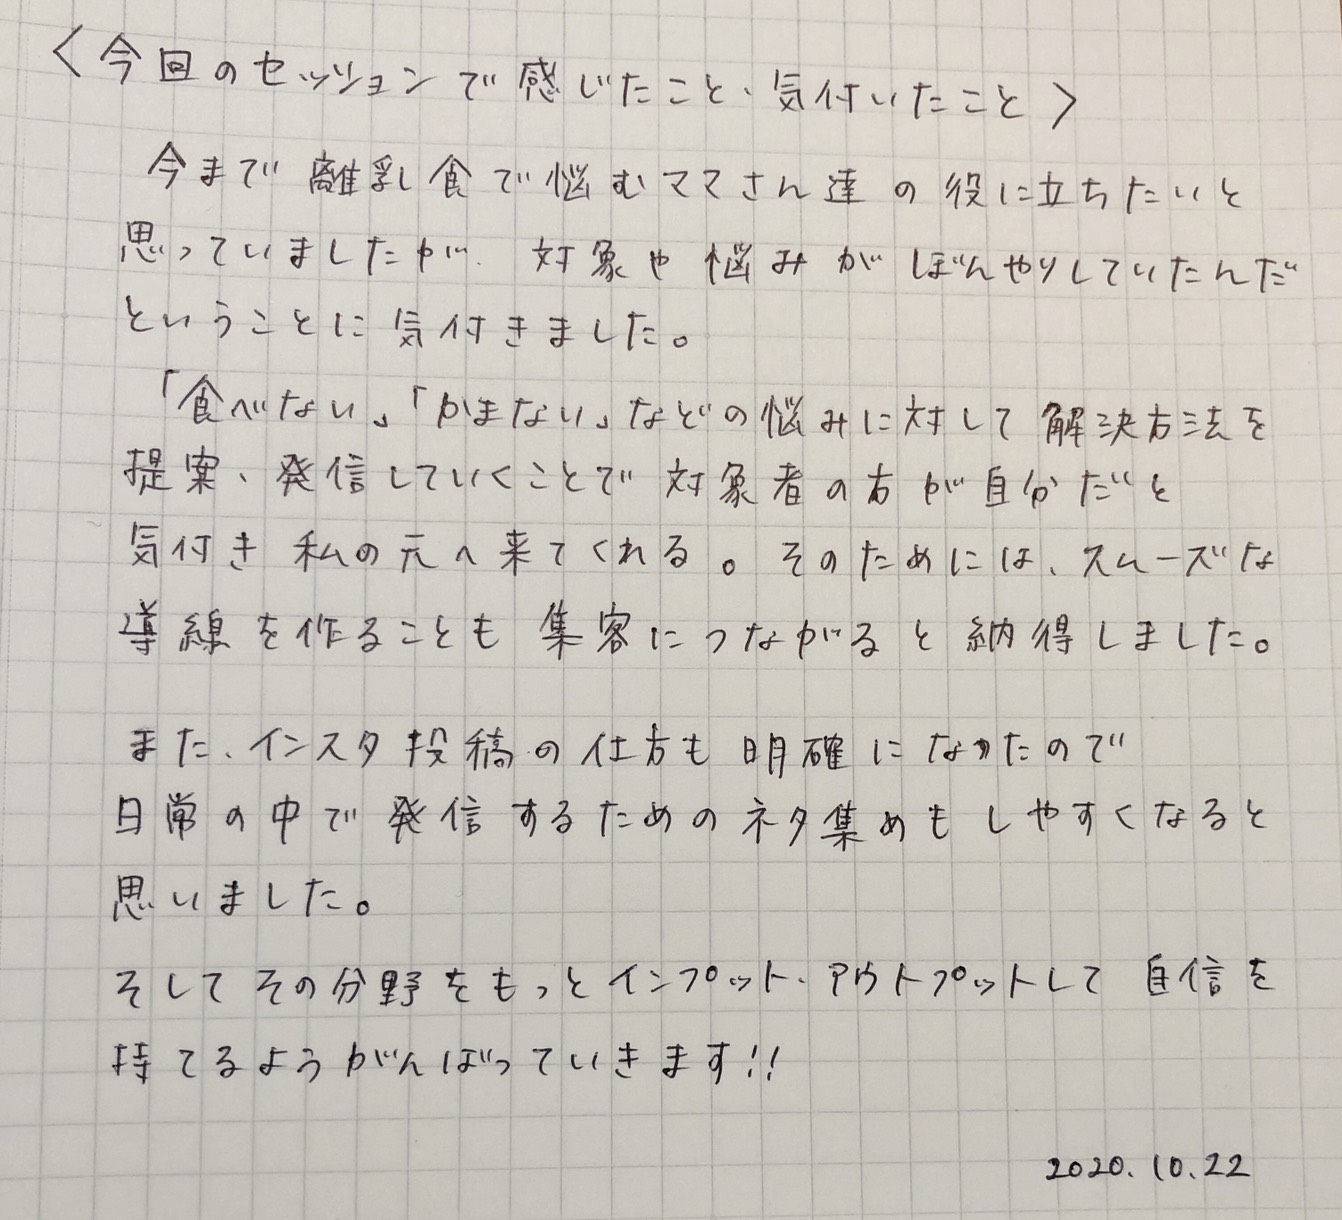 〈今回のセッションで感じたこと、気付いたこと〉
今まで離乳食で悩むママさん達の役に立ちたいと
思っていましたが、対象や悩みがぼんやりしていたんだ
ということに気付きました。
「食べない」「かまない」などの悩みに対して解決方法を
提案、発信していくことで対象者の方が自分だと
気付き私の元へ来てくれる。そのためには、スムーズな
導線を作ることも集客につながると納得しました。
また、インスタ投稿の仕方も明確になったので
日常の中で発信するためのネタ集めもしやすくなると
思いました。
そしてその分野をもっとインプット、アウトプットして自信を
持てるようがんばっていきます!!
2020.10.22